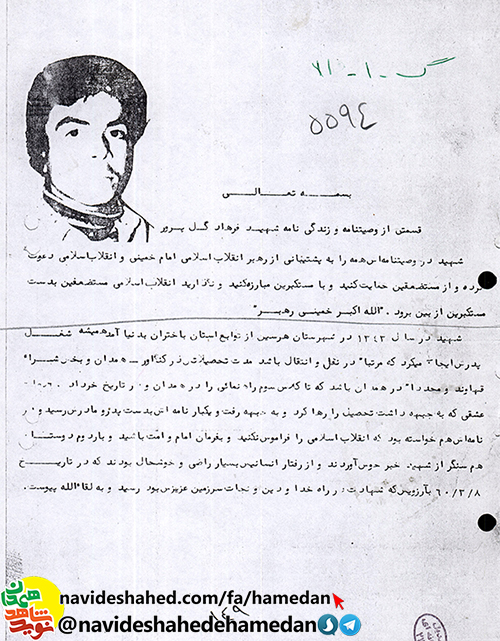 گ - ۱ - ۷۱
۵۵۹۴
بسمه تعالی
قسمتی از وصیتنامه و زندگی نامه شهید فرهاد گل پرور
شهید در وصیتنامه‌اش همه را به پشتیبانی از رهبر انقلاب اسلامی امام خمینی و انقلاب اسلامی دعوت
کرده و از مستضعفین حمایت کنید و با مستکبرین مبارزه کنید و نگذارید انقلاب اسلامی مستضعفین بدست
مستکبرین از بین برود . "الله اکبر خمینی رهبر"
شهید در سال ۱۳۴۳ در شهرستان هرسین از توابع استان باختران بدنیا آمد همیشه شغل
پدرش ایجاب میکرد که مرتباً در نقل و انتقال باشد مدت تحصیلاتش در کنگاور - همدان و بخش شراء
قهاوند و مجدداً در همدان باشد که تا کلاس سوم راهنمائی را در همدان و در تاریخ خرداد
عشقی که به جبهه داشت تحصیل را رها کرد و به جبهه رفت و یکبار نامه اش بدست پدر و مادرش رسید و در
نامه‌اش هم خواسته بود که انقلاب اسلامی را فراموش نکنید و بفرمان امام و امت باشید و بار دوم دوستان
هم سنگر از شهید خبر خوش آوردند و از رفتار انسانیش بسیار راضی و خوشحال بودند که در تاریخ
۶۰/۳/۸ بآرزویش که شهادت در راه خدا و دین و نجات سرزمین عزیزش بود رسید و به لقاءالله پیوست.
نوید شاهد همدان
navideshahed.com/fa/hamedan
@navideshahedehamedan